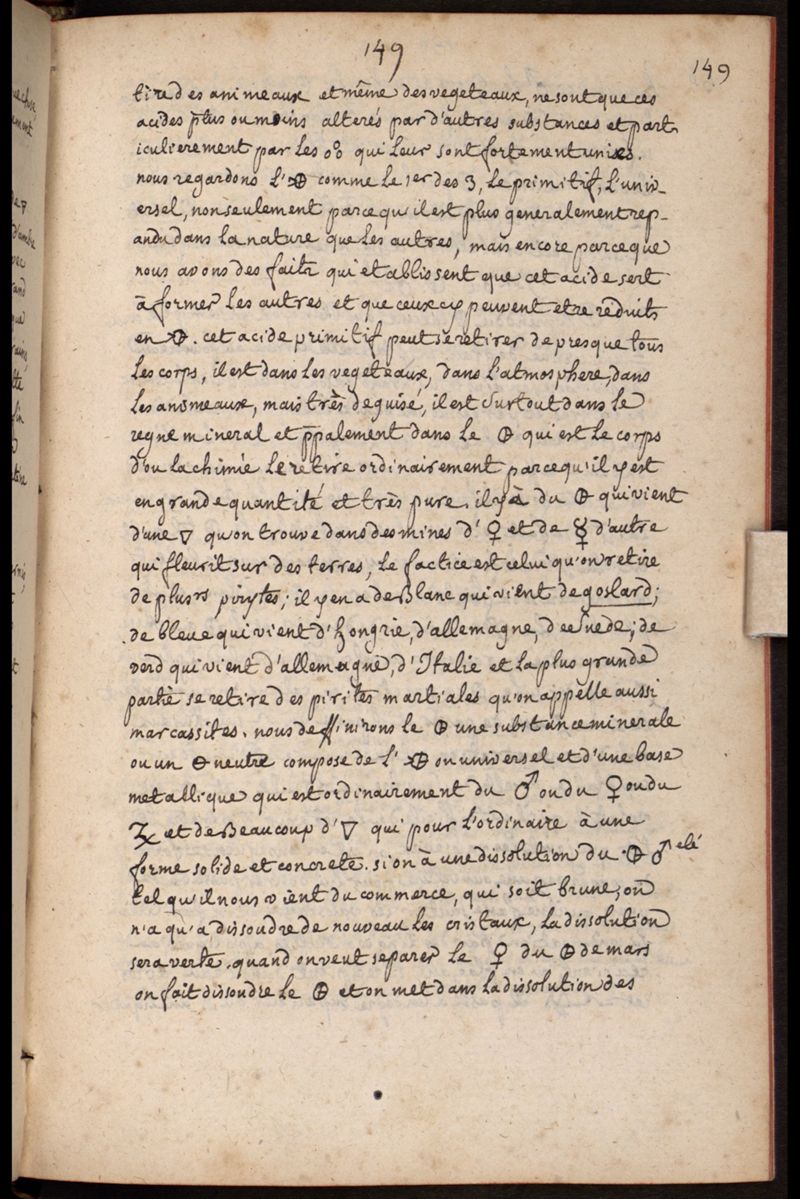 149
149
tiré des animeaux et même des vegeteaux, ne sont que ces
acides plus ou moins alterés par d'autres substances et part
iculierement par les o°o qui leur sont fortement unises.
nous regardons l'🜖 comme le 1er des 3, le primitif, l'univ-
ersel, nonseulement parce qu'il est plus generalement rep-
andu dans la nature que les autres, mais encore parceque
nous avons des faits qui etablissent que cet acide sert
à former les autres et que ceux cy peuvent etre reduits
en 🜖. cet acide primitif peut se retirer de presque tous
les corps, il est dans les vegeteaux, dans l'atmosphere, dans
les animeaux, mais très deguisé, il est surtout dans le
regne mineral et pp̄alement dans le 🜨 qui est le corps
d'ou la chimie le retire ordinairement parcequ'il y est
en grande quantité et très pure. il y à du 🜨 qui vient
d'une ▽ qu'on trouve dans des mines d' ♀ et de ☿ d'autre
qui fleurit sur des terres, le factice est celui qu'on retire
de plusrs pirytes; il y en a de Blanc qui vient de goslard;
de bleue qui vient d'hongrie, d'allemagne, de suede; de
verd qui vient d'allemagne, d'Italie et la plus grande
partie se retire des pirites martiales qu'on appelle aussi
marcassites. nous deffinirons le 🜨 une substance minerale
ou un 🜔 neutre compose de l' 🜖 ou universel et d'une base
metallique qui est ordinairement du ♂ ou du ♀ ou du
Zχ et de Beaucoup d' ▽ qui pour l'ordinaire à une
forme solide et concrete. si on à une dissolution du 🜨 ♂ elé
tel qu'il nous vient du commerce, qui soit brune, on
n'a qu'à dissoudre de nouveau les cristaux, la dissolution
sera verte. quand on veut separer le ♀ du 🜨 de mars
on fait dissoudre le 🜨 et on met dans la dissolution des